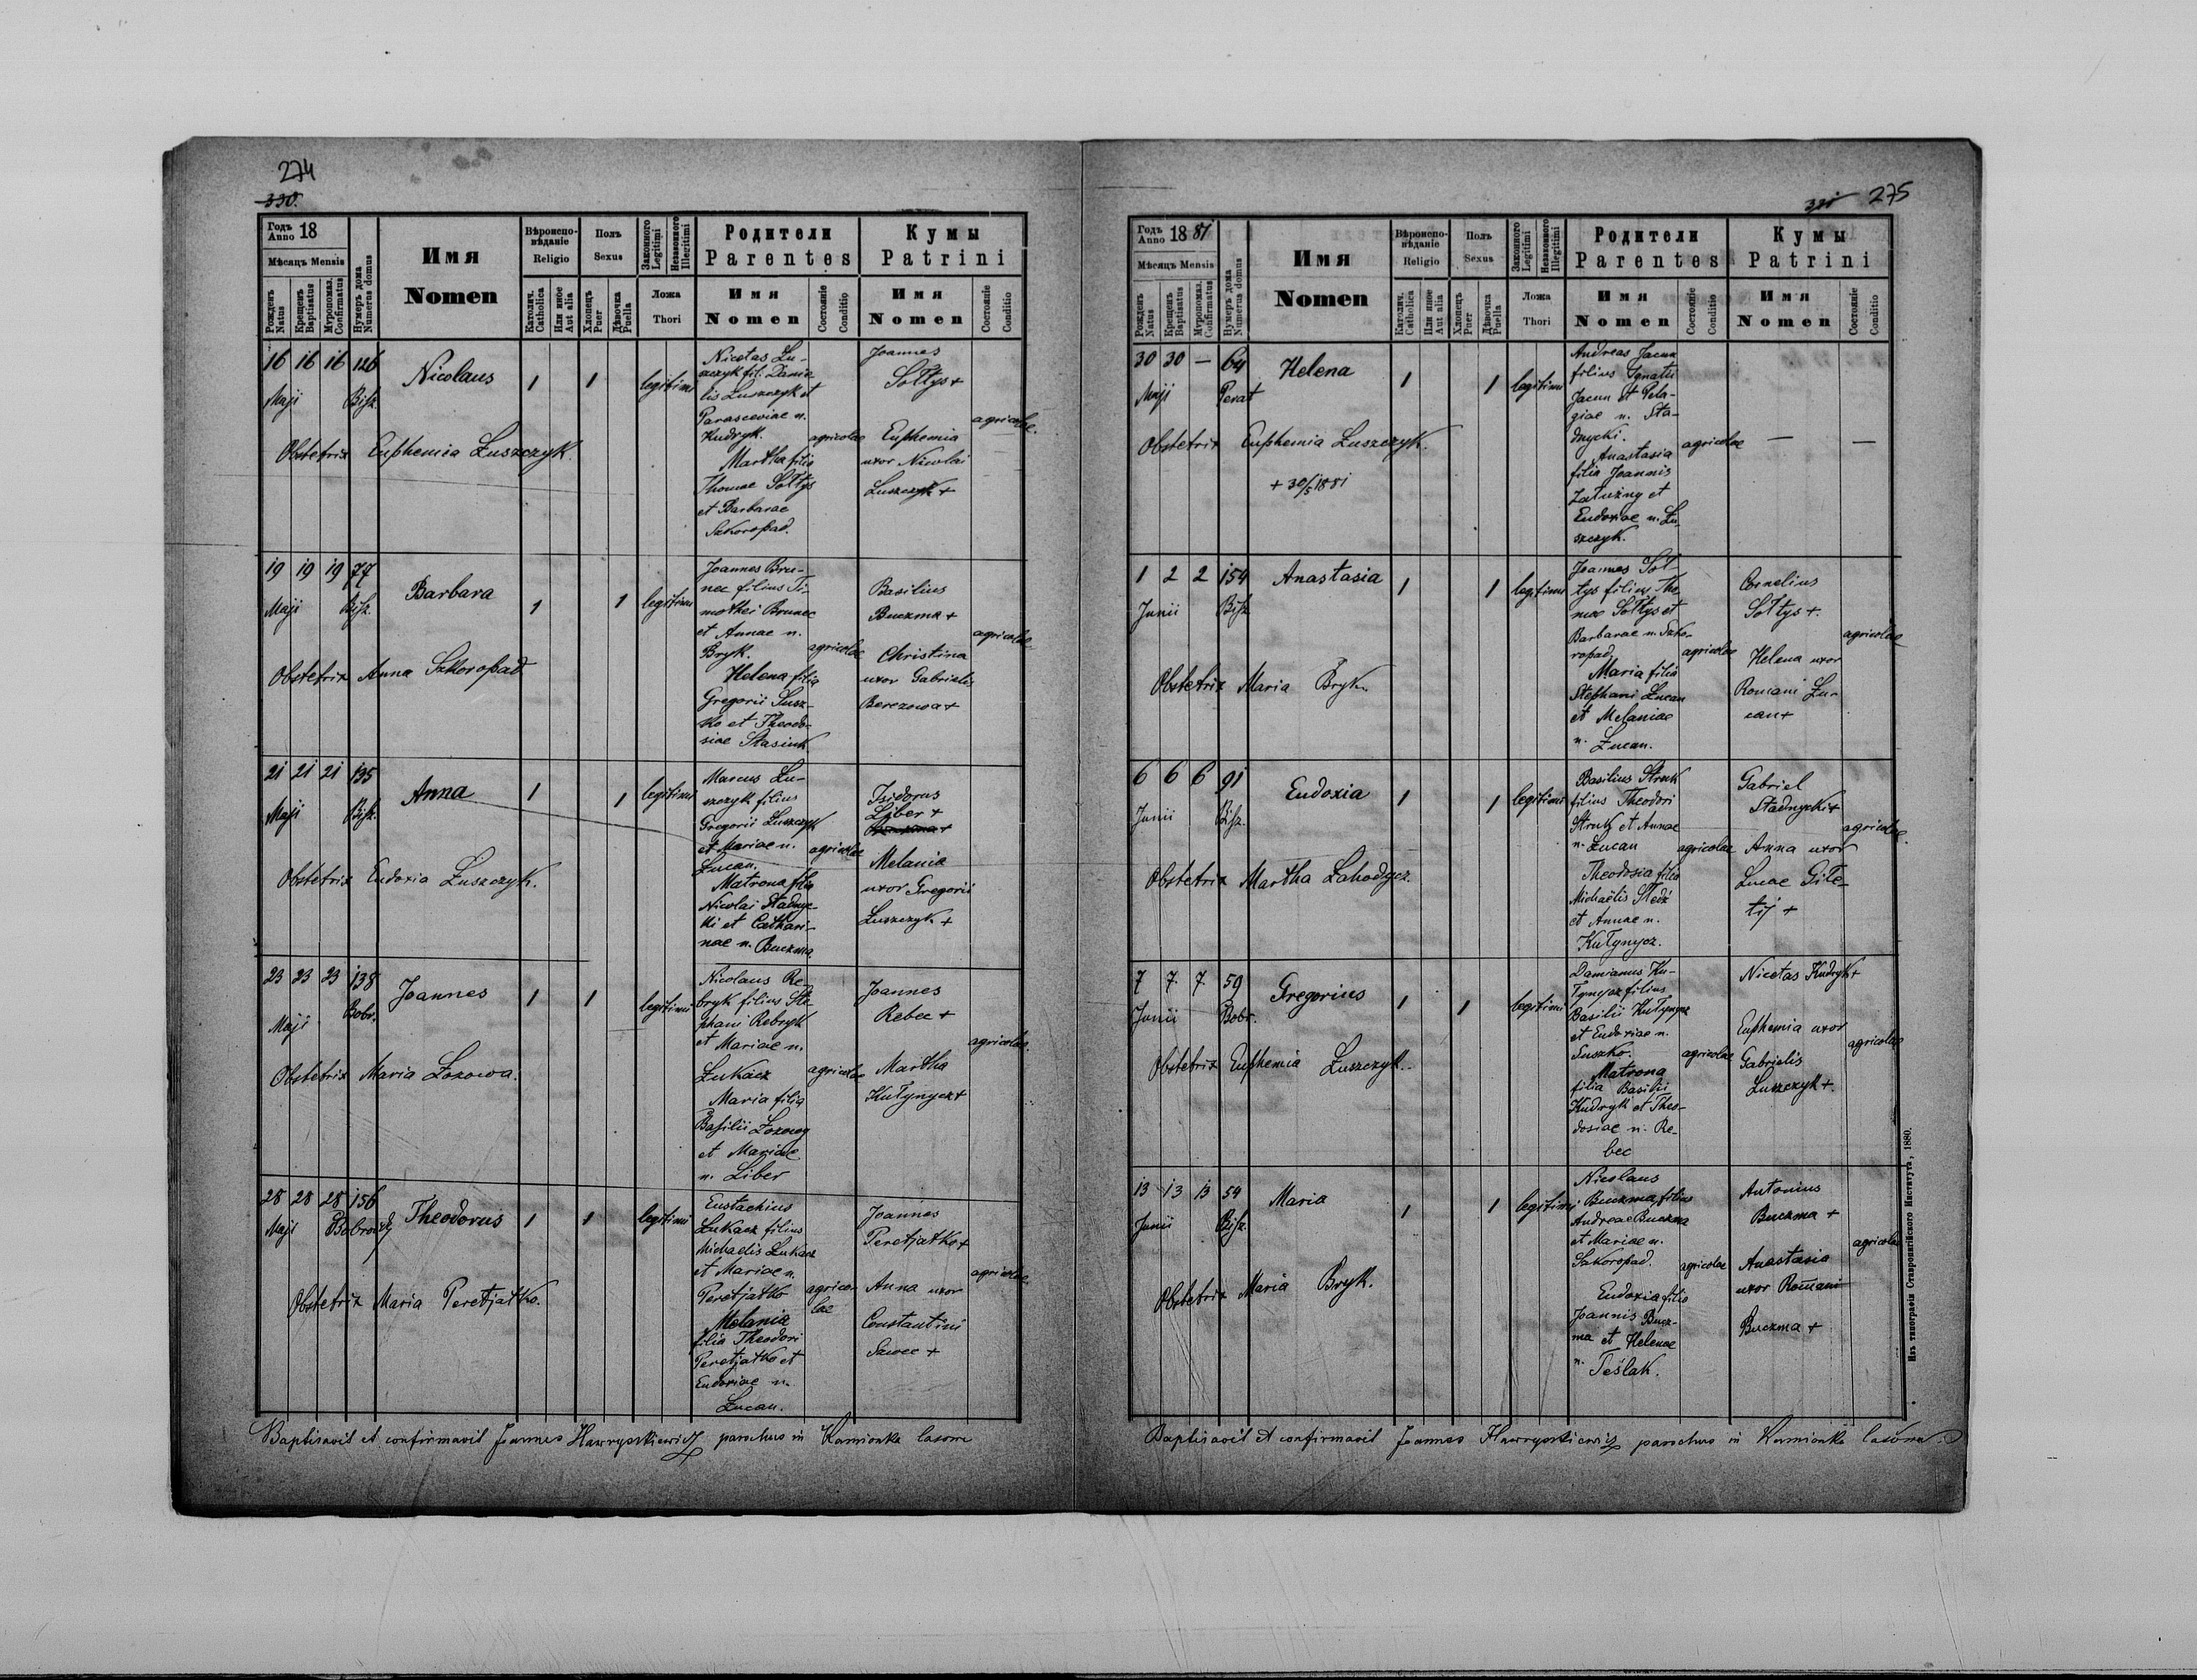 274
330.
Годъ Anno 18
Мѣсяцъ Mensis
Рожденъ Natus
Крещенъ Baptisatus
Мѵропомаз. Confirmatus
Нумеръ дома Numerus domus
Имя
Nomen
Вѣроисповѣданіе Religio
Католич. Catholica
Или иное Aut alia
Полъ Sexus
Хлопецъ Puer
Дѣвочка Puella
Законного Legitimi
Незаконного Illegitimi
Ложа Thori
Родители
Parentes
Имя
Nomen
Состояніе Conditio
Кумы
Patrini
Имя
Nomen
Состояніе Conditio
16 16 16 126
Maji Bisz.
Nicolaus
1 1 legitimi
Nicetas Łu-
szczyk fil. Danie
lis Łuszczyk et
Parasceviae n.
Kudryk.
Martha filia
Thomae Sołtys
et Barbarae
Szkoropad.
agricolae
Joannes
Sołtys +
Euphemia
uxor Nicolai
Łuszczyk +
agricolae.
Obstetrix Euphemia Łuszczyk.
19 19 19 77
Maji Bisz.
Barbara
1 1 legitimi
Joannes Bru-
nec filius Ti-
mothei Brunec
et Annae n.
Bryk.
Helena filia
Gregorii Susz-
ko et Theodo-
siae Stasiuk
agricolae
Basilius
Buczma +
Christina
uxor Gabrielis
Berezowa +
agricolae
Obstetrix Anna Szkoropad
21 21 21 135
Maji Bisz.
Anna
1 1 legitimi
Marcus Łu-
szczyk filius
Gregorii Łuszczyk
et Mariae n.
Łucan.
Matrona filia
Nicolai Stadnyc-
ki et Cathari-
nae n. Buczma
agricolae
Isidorus
Liber +
Melania
uxor Gregorii
Łuszczyk +
Obstetrix Eudoxia Łuszczyk.
23 23 23 138
Maji Bobr.
Joannes
1 1 legitimi
Nicolaus Re-
bryk filius Ste-
phani Rebryk
et Mariae n.
Łukacz
Maria filia
Basilii Łozowy
et Mariae
n. Liber
agricolae
Joannes
Rebec +
Martha
Kułynycz +
agricolae.
Obstetrix Maria Łozowa.
28 28 28 156
Maji
Theodorus
1 1 legitimi
Eustachius
Łukacz filius
Michaelis Łukacz
et Mariae n.
Peretjatko
Melania
filia Theodori
Peretjatko et
Eudoxiae n.
Łucan.
agrico-
lae
Joannes
Peretjatko +
Anna uxor
Constantini
Szwec +
agricolae.
Obstetrix Maria Peretjatko.
Baptisavit et confirmavit Joannes Hawryszkiewicz parochus in Kamionka lasowa
275
Годъ Anno 1881
Мѣсяцъ Mensis
Рожденъ Natus
Крещенъ Baptisatus
Мѵропомаз. Confirmatus
Нумеръ дома Numerus domus
Имя
Nomen
Вѣроисповѣданіе Religio
Католич. Catholica
Или иное Aut alia
Полъ Sexus
Хлопецъ Puer
Дѣвочка Puella
Законного Legitimi
Незаконного Illegitimi
Ложа Thori
Родители
Parentes
Имя
Nomen
Состояніе Conditio
Кумы
Patrini
Имя
Nomen
Состояніе Conditio
30 30 — 64
Maji Perat
Helena
1 1 legitimi
Andreas Jacun
filius Ignatii
Jacun et Pela-
giae n. Sta-
dnycki.
Anastasia
filia Joannis
Załużny et
Eudoxiae n. Łu-
szczyk.
agricolae
— —
Obstetrix Euphemia Łuszczyk.
+ 30/5 1881
1 2 2 154
Junii Bisz
Anastasia
1 1 legitimi
Joannes Soł-
tys filius Tho-
mae Sołtys et
Barbarae n. Szko-
ropad.
Maria filia
Stephani Łucan
et Melaniae
n. Łucan.
agricolae
Cornelius
Sołtys +.
Helena uxor
Romani Łu-
can +
agricolae
Obstetrix Maria Bryk.
6 6 6 91
Junii Bisz.
Eudoxia
1 1 legitimi
Basilius Struk
filius Theodori
Struk et Annae
n. Łucan
Theodosia filia
Michaëlis Śledź
et Annae n.
Kułynycz.
agricolae
Gabriel
Stadnycki +
Anna uxor
Lucae Gile-
tij +
agricolae.
Obstetrix Martha Lahodycz.
7 7. 7. 59
Junii Bobr.
Gregorius
1 1 legitimi
Damianus Ku-
łynycz filius
Basilii Kułynycz
et Eudoxiae n.
Suszko.
Matrona
filia Basilii
Kudryk et Theo-
dosiae n. Re-
bec
agricolae
Nicetas Kudryk +
Euphemia uxor
Gabrielis
Łuszczyk +.
agricolae
Obstetrix Euphemia Łuszczyk.
13 13 13 54
Junii Bisz.
Maria
1 1 legitimi
Nicolaus
Buczma filius
Andreae Buczma
et Mariae n.
Szkoropad.
Eudoxia filia
Joannis Bucz-
ma et Helenae
n. Teślak.
agricolae
Antonius
Buczma +
Anastasia
uxor Romani
Buczma +
agricolae
Obstetrix Maria Bryk.
Baptisavit et confirmavit Joannes Hawryszkiewicz parochus in Kamionka lasowa.
Изъ типографіи Ставропигійского Института, 1880.